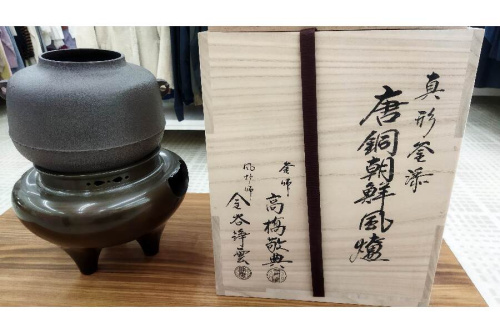 真形釜添
唐銅朝鮮風爐
釜師 高橋敬典
風炉師 金谷浄雲